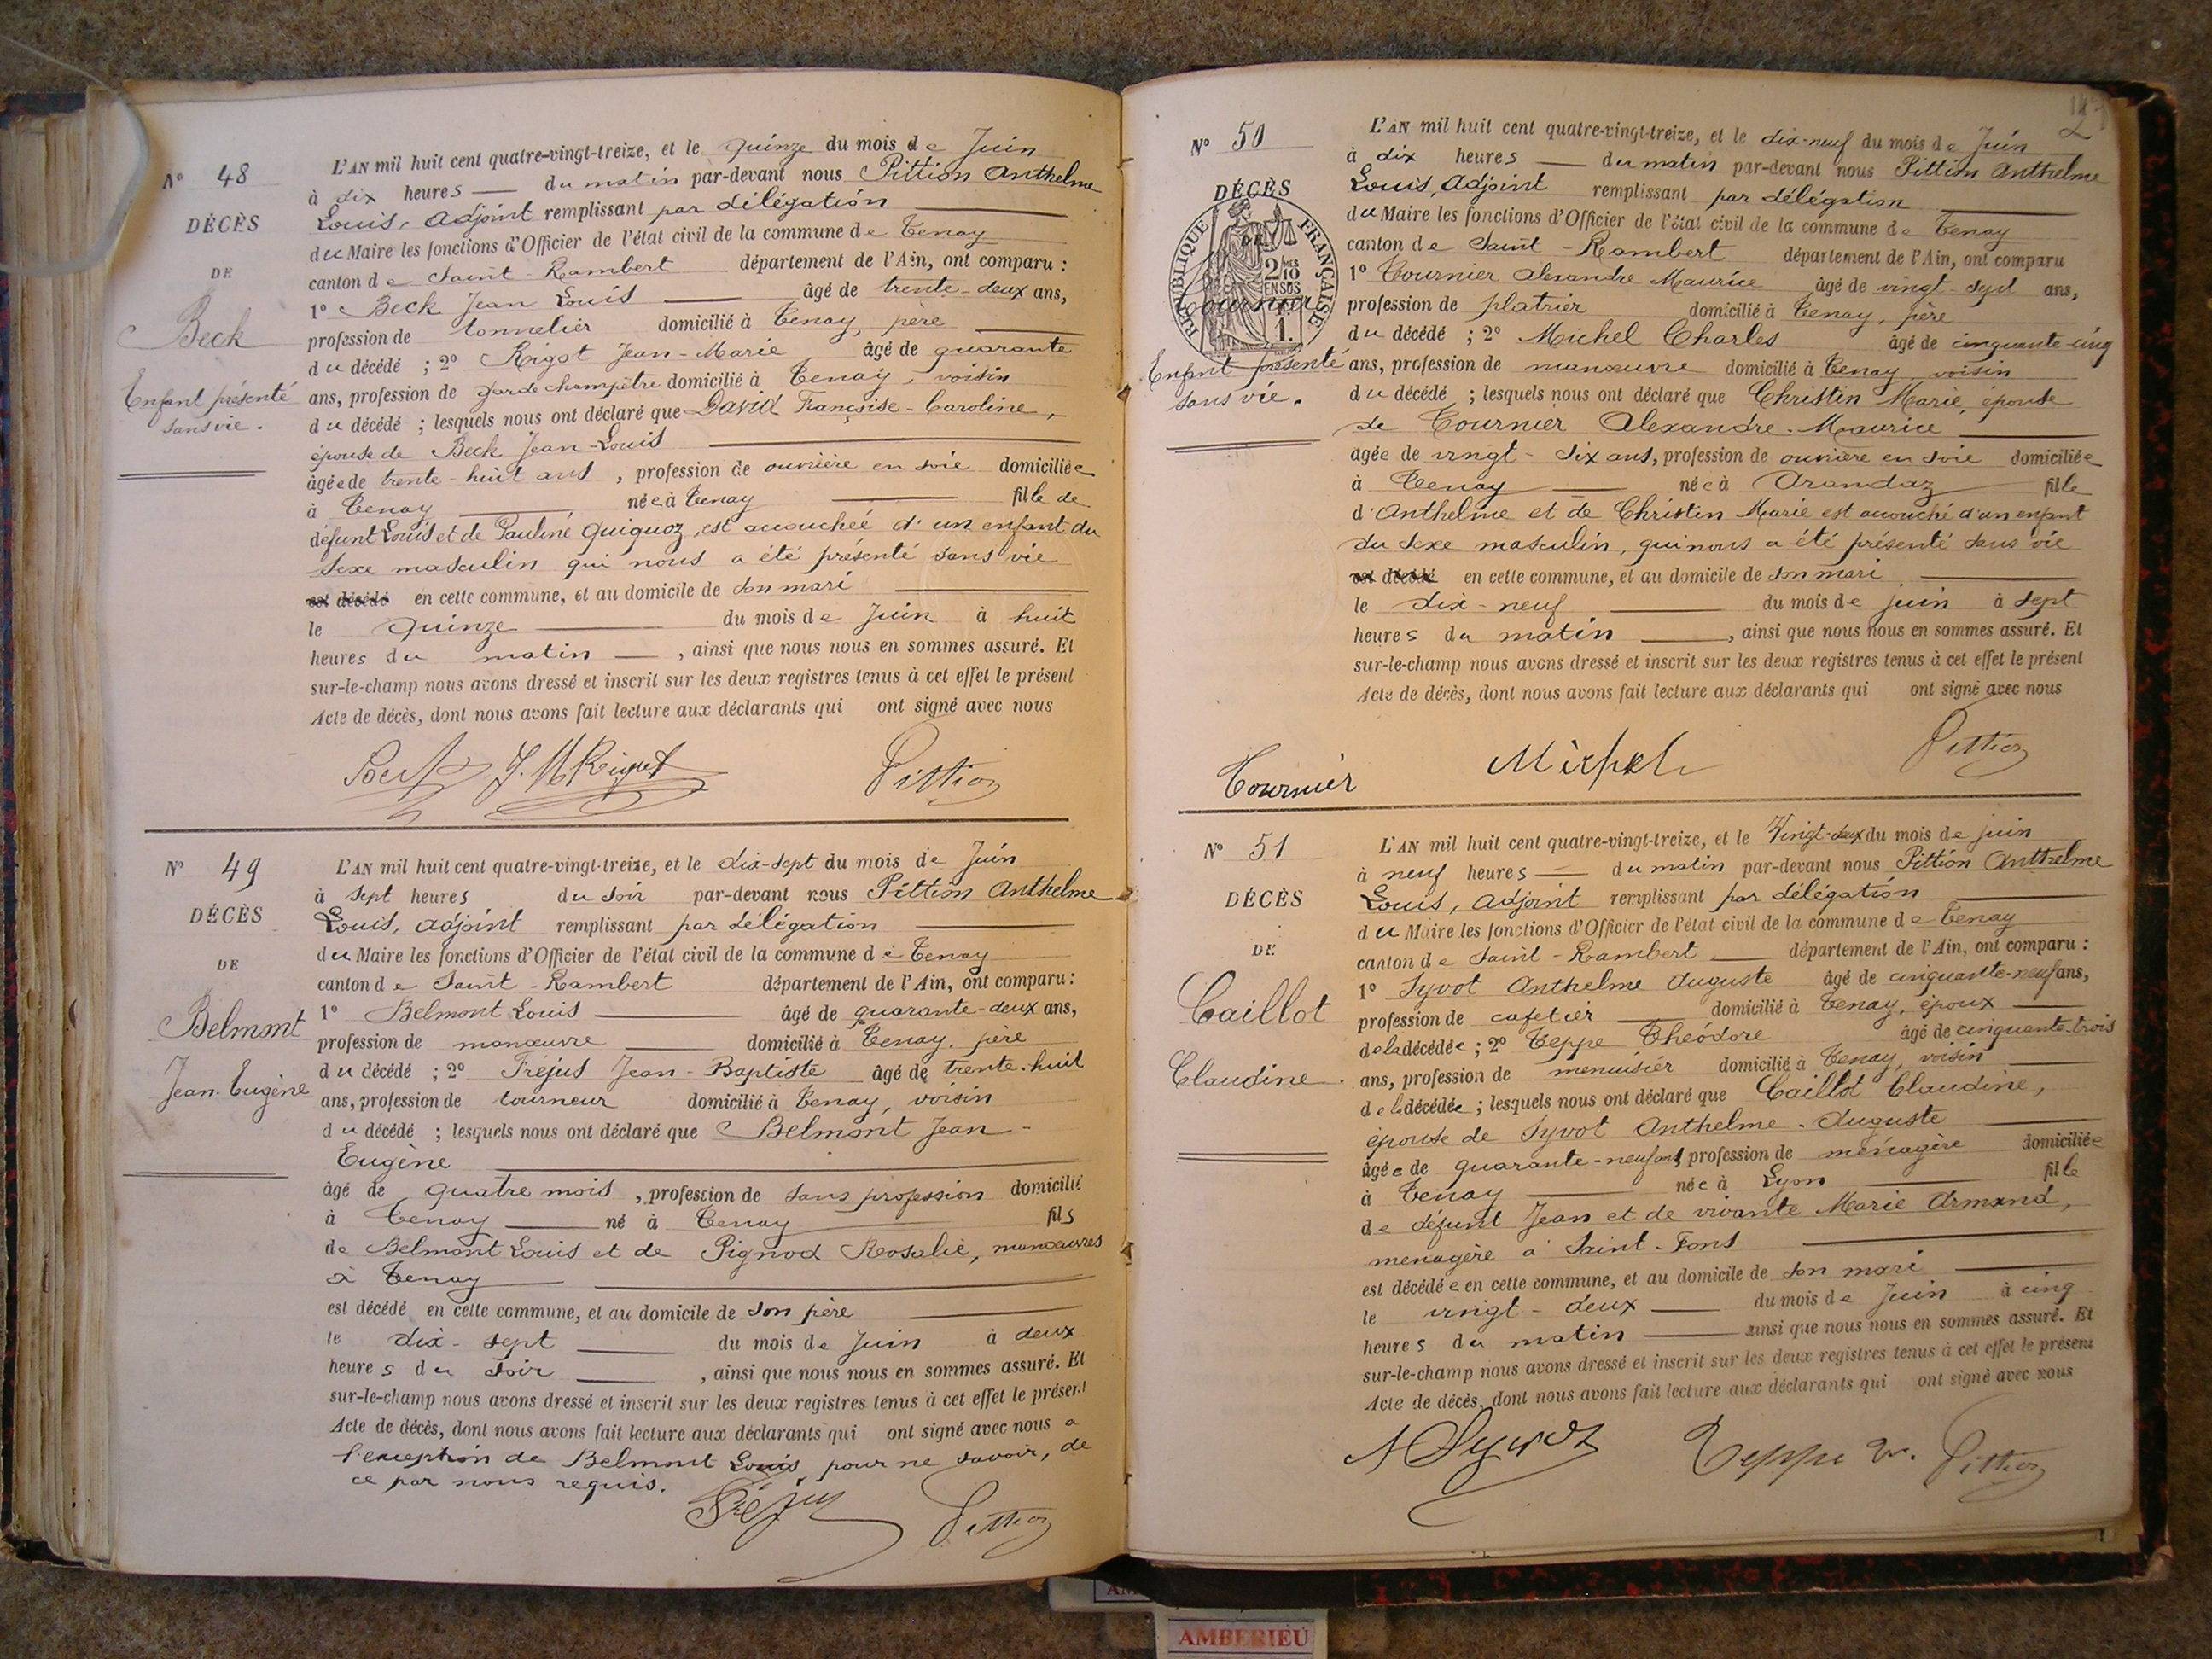 N° 48
DÉCÈS
DE
Beck
Enfant présenté
sans vie.
L'AN mil huit cent quatre-vingt-treize, et le quinze du mois de Juin
à dix heures du matin par-devant nous Pittion Anthelme
Louis, adjoint remplissant par délégation
du Maire les fonctions d'Officier de l'état civil de la commune de Tenay
canton de Saint-Rambert département de l'Ain, ont comparu :
1° Beck Jean Louis âgé de trente-deux ans,
profession de tonnelier domicilié à Tenay, père
du décédé ; 2° Rigot Jean-Marie âgé de quarante
ans, profession de garde champêtre domicilié à Tenay, voisin
du décédé ; lesquels nous ont déclaré que David Françoise-Caroline,
épouse de Beck Jean-Louis
âgée de trente-huit ans, profession de ouvrière en soie domiciliée
à Tenay née à Tenay fille de
défunt Louis et de Pauline Quiquoz, est accouchée d'un enfant du
sexe masculin qui nous a été présenté sans vie
est décédé en cette commune, et au domicile de son mari
le quinze du mois de Juin à huit
heures du matin, ainsi que nous nous en sommes assuré. Et
sur-le-champ nous avons dressé et inscrit sur les deux registres tenus à cet effet le présent
Acte de décès, dont nous avons fait lecture aux déclarants qui ont signé avec nous
J. M Rigot Pittion
N° 49
DÉCÈS
DE
Belmont
Jean-Eugène
L'AN mil huit cent quatre-vingt-treize, et le dix-sept du mois de Juin
à sept heures du soir par-devant nous Pittion Anthelme
Louis, adjoint remplissant par délégation
du Maire les fonctions d'Officier de l'état civil de la commune de Tenay
canton de Saint-Rambert département de l'Ain, ont comparu :
1° Belmont Louis âgé de quarante-deux ans,
profession de manœuvre domicilié à Tenay, père
du décédé ; 2° Fréjus Jean-Baptiste âgé de trente-huit
ans, profession de tourneur domicilié à Tenay, voisin
du décédé ; lesquels nous ont déclaré que Belmont Jean-
Eugène
âgé de quatre mois, profession de sans profession domicilié
à Tenay né à Tenay fils
de Belmont Louis et de Pignod Rosalie, manœuvres
à Tenay
est décédé en cette commune, et au domicile de son père
le dix-sept du mois de Juin à deux
heures du soir, ainsi que nous nous en sommes assuré. Et
sur-le-champ nous avons dressé et inscrit sur les deux registres tenus à cet effet le présent
Acte de décès, dont nous avons fait lecture aux déclarants qui ont signé avec nous a
l'exception de Belmont Louis, pour ne savoir, de
ce par nous requis.
Fréjus Pittion
N° 50
DÉCÈS
DE
RÉPUBLIQUE FRANÇAISE
2 MES 10
EN SUS
1.
Tournier
Enfant présenté
sans vie.
L'AN mil huit cent quatre-vingt-treize, et le dix-neuf du mois de Juin
à dix heures du matin par-devant nous Pittion Anthelme
Louis, adjoint remplissant par délégation
du Maire les fonctions d'Officier de l'état civil de la commune de Tenay
canton de Saint-Rambert département de l'Ain, ont comparu
1° Tournier Alexandre Maurice âgé de vingt-sept ans,
profession de platrier domicilié à Tenay, père
du décédé ; 2° Michel Charles âgé de cinquante-cinq
ans, profession de manœuvre domicilié à Tenay voisin
du décédé ; lesquels nous ont déclaré que Christin Marie, épouse
de Tournier Alexandre-Maurice
âgée de vingt-six ans, profession de ouvrière en soie domiciliée
à Tenay née à Arandaz fille
d'Anthelme et de Christin Marie est accouché d'un enfant
du sexe masculin, qui nous a été présenté sans vie
est décédé en cette commune, et au domicile de son mari
le dix-neuf du mois de juin à sept
heures du matin, ainsi que nous nous en sommes assuré. Et
sur-le-champ nous avons dressé et inscrit sur les deux registres tenus à cet effet le présent
Acte de décès, dont nous avons fait lecture aux déclarants qui ont signé avec nous
Tournier Michel Pittion
N° 51
DÉCÈS
DE
Caillot
Claudine.
L'AN mil huit cent quatre-vingt-treize, et le Vingt-deux du mois de juin
à neuf heures du matin par-devant nous Pittion Anthelme
Louis, adjoint remplissant par délégation
du Maire les fonctions d'Officier de l'état civil de la commune de Tenay
canton de Saint-Rambert département de l'Ain, ont comparu :
1° Syvot Anthelme Auguste âgé de cinquante-neuf ans,
profession de cafetier domicilié à Tenay, époux
de la décédée ; 2° Teppe Théodore âgé de cinquante-trois
ans, profession de menuisier domicilié à Tenay, voisin
de la décédée ; lesquels nous ont déclaré que Caillot Claudine,
épouse de Syvot Anthelme-Auguste
âgée de quarante-neuf ans, profession de ménagère domiciliée
à Tenay née à Lyon fille
de défunt Jean et de vivante Marie Armand,
menagère a Saint-Fons
est décédée en cette commune, et au domicile de son mari
le vingt-deux du mois de Juin à cinq
heures du matin ainsi que nous nous en sommes assuré. Et
sur-le-champ nous avons dressé et inscrit sur les deux registres tenus à cet effet le présent
Acte de décès, dont nous avons fait lecture aux déclarants qui ont signé avec nous
A Syvot Teppe Pittion
AMBERIEU